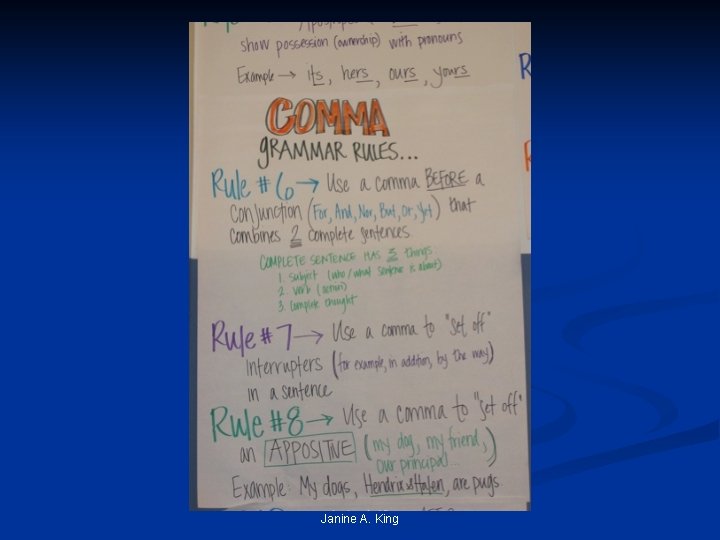 show possession (ownership) with pronouns
Example → its, hers, ours, yours
COMMA
GRAMMAR RULES...
Rule #6 → Use a comma BEFORE a
conjunction (For, And, Nor, But, Or, Yet) that
combines 2 complete sentences.
COMPLETE SENTENCE HAS 3 things:
1. subject (who/what sentence is about)
2. verb (action)
3. complete thought
Rule #7 → Use a comma to "set off"
interrupters (for example, in addition, by the way)
in a sentence
Rule #8 → Use a comma to "set off"
an APPOSITIVE (my dog, my friend,
our principal...)
Example: My dogs, Hendrix & Halen, are pugs
Janine A. King